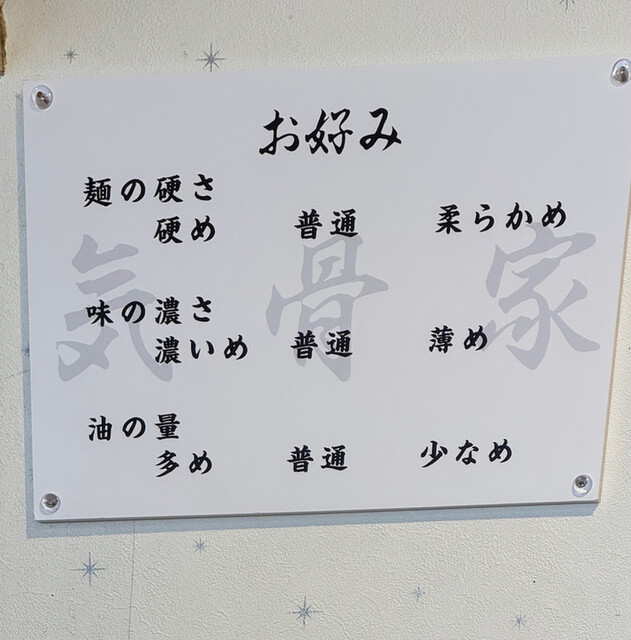 お好み
麺の硬さ
硬め 普通 柔らかめ
気骨家
味の濃さ
濃いめ 普通 薄め
油の量
多め 普通 少なめ